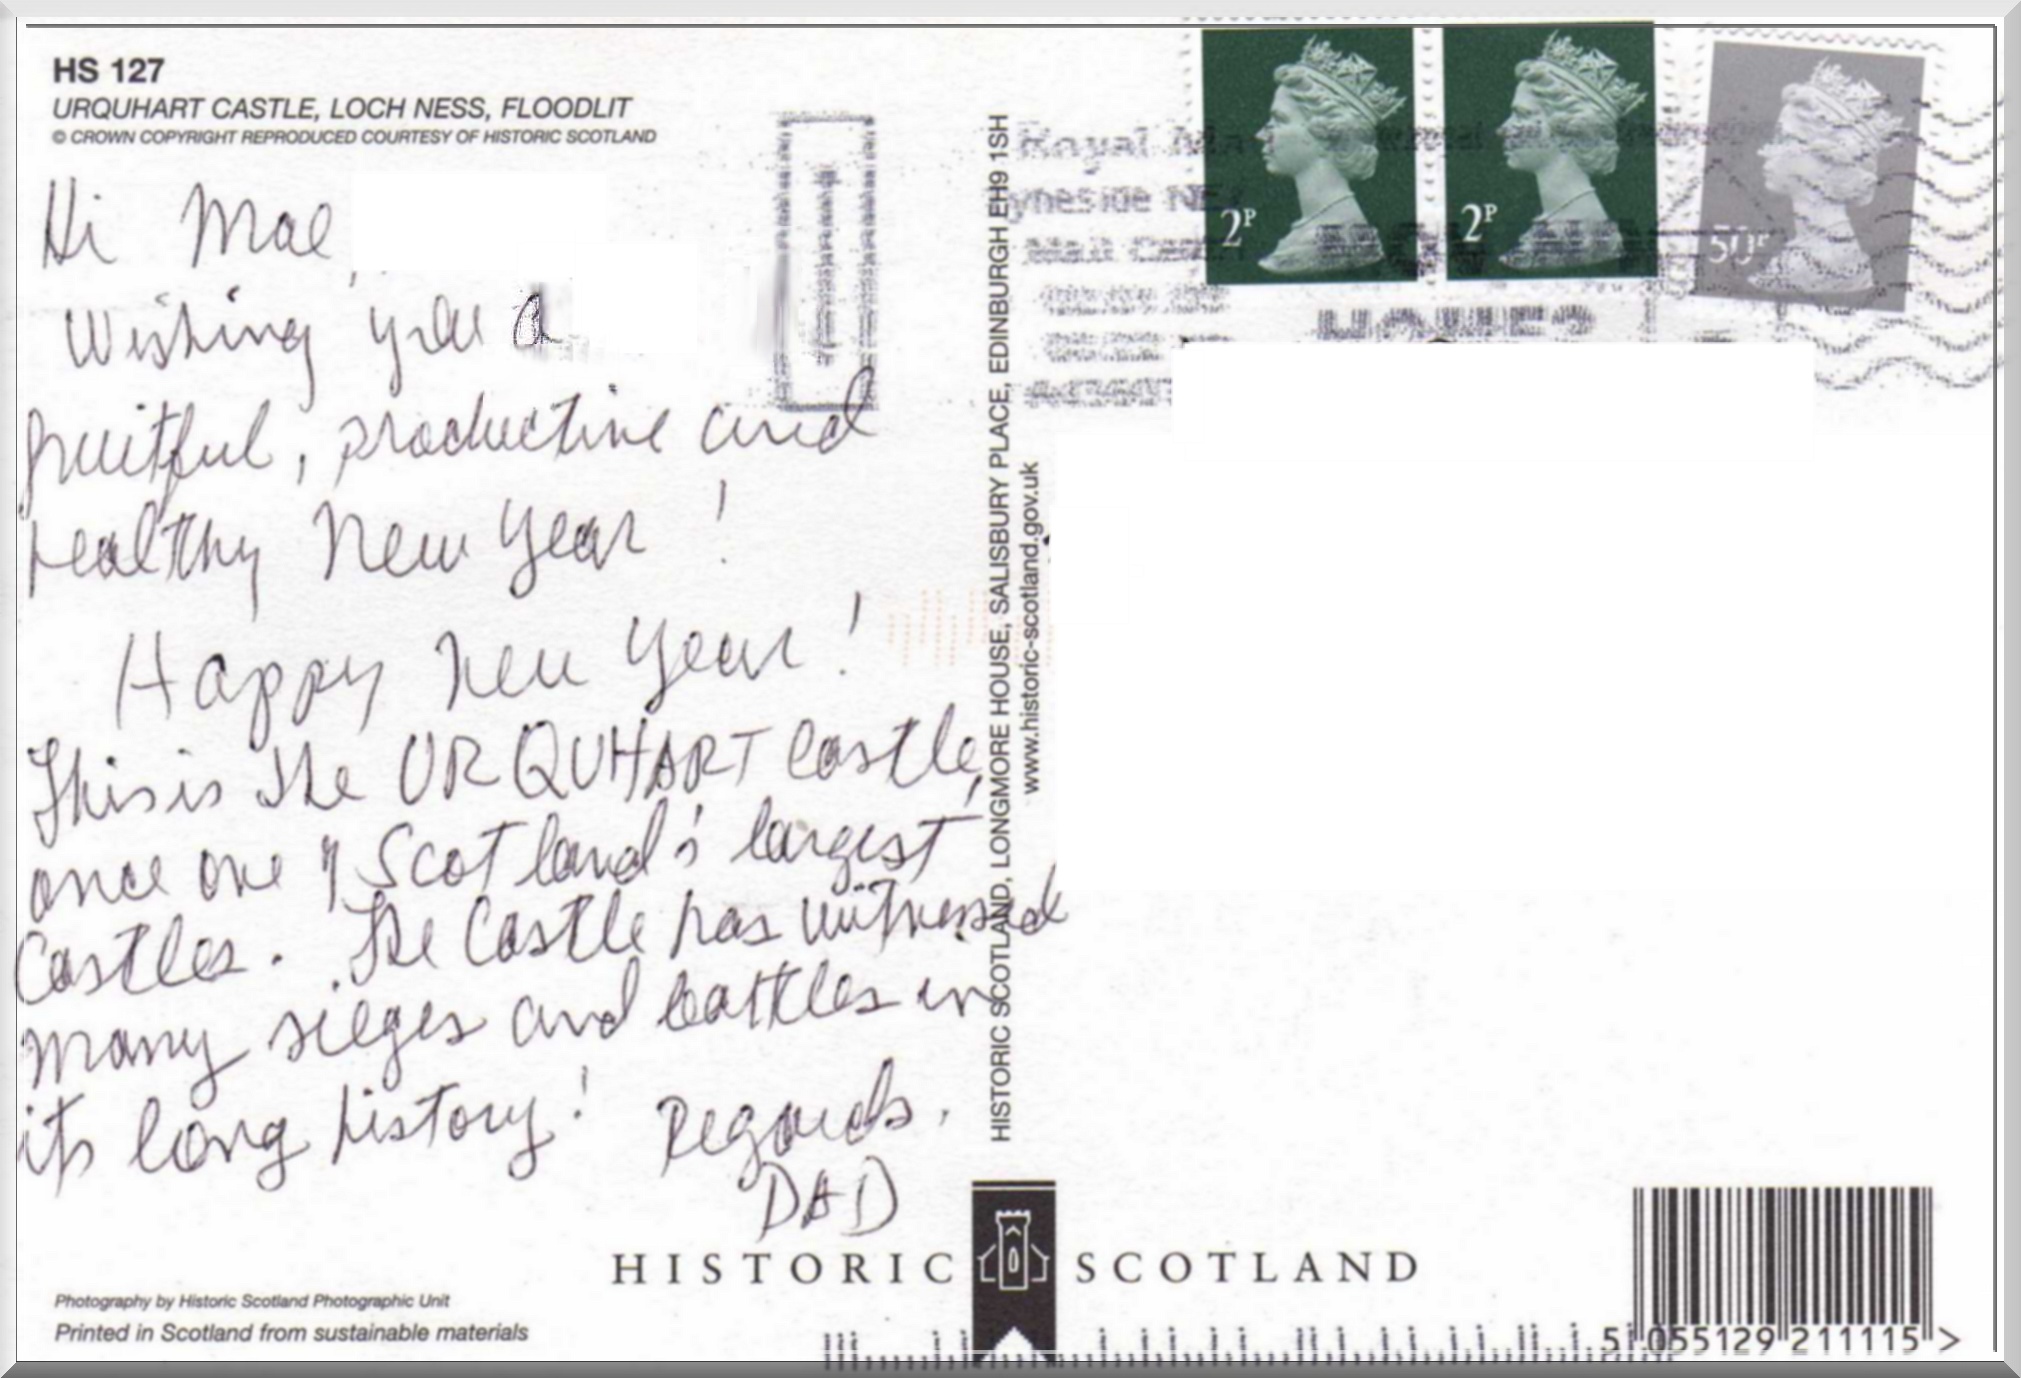 HS 127
URQUHART CASTLE, LOCH NESS, FLOODLIT
© CROWN COPYRIGHT REPRODUCED COURTESY OF HISTORIC SCOTLAND
Hi Mae,
Wishing you a
fruitful, productive and
healthy New Year!
Happy New Year!
This is the URQUHART Castle,
once one of Scotland's largest
Castles. The Castle has witnessed
many sieges and battles in
its long history! Regards.
DAD
HISTORIC SCOTLAND, LONGMORE HOUSE, SALISBURY PLACE, EDINBURGH EH9 1SH
www.historic-scotland.gov.uk
Royal Mail
2P
2P
50P
HOME?
HISTORIC SCOTLAND
Photography by Historic Scotland Photographic Unit
Printed in Scotland from sustainable materials
5 055129 211115 >